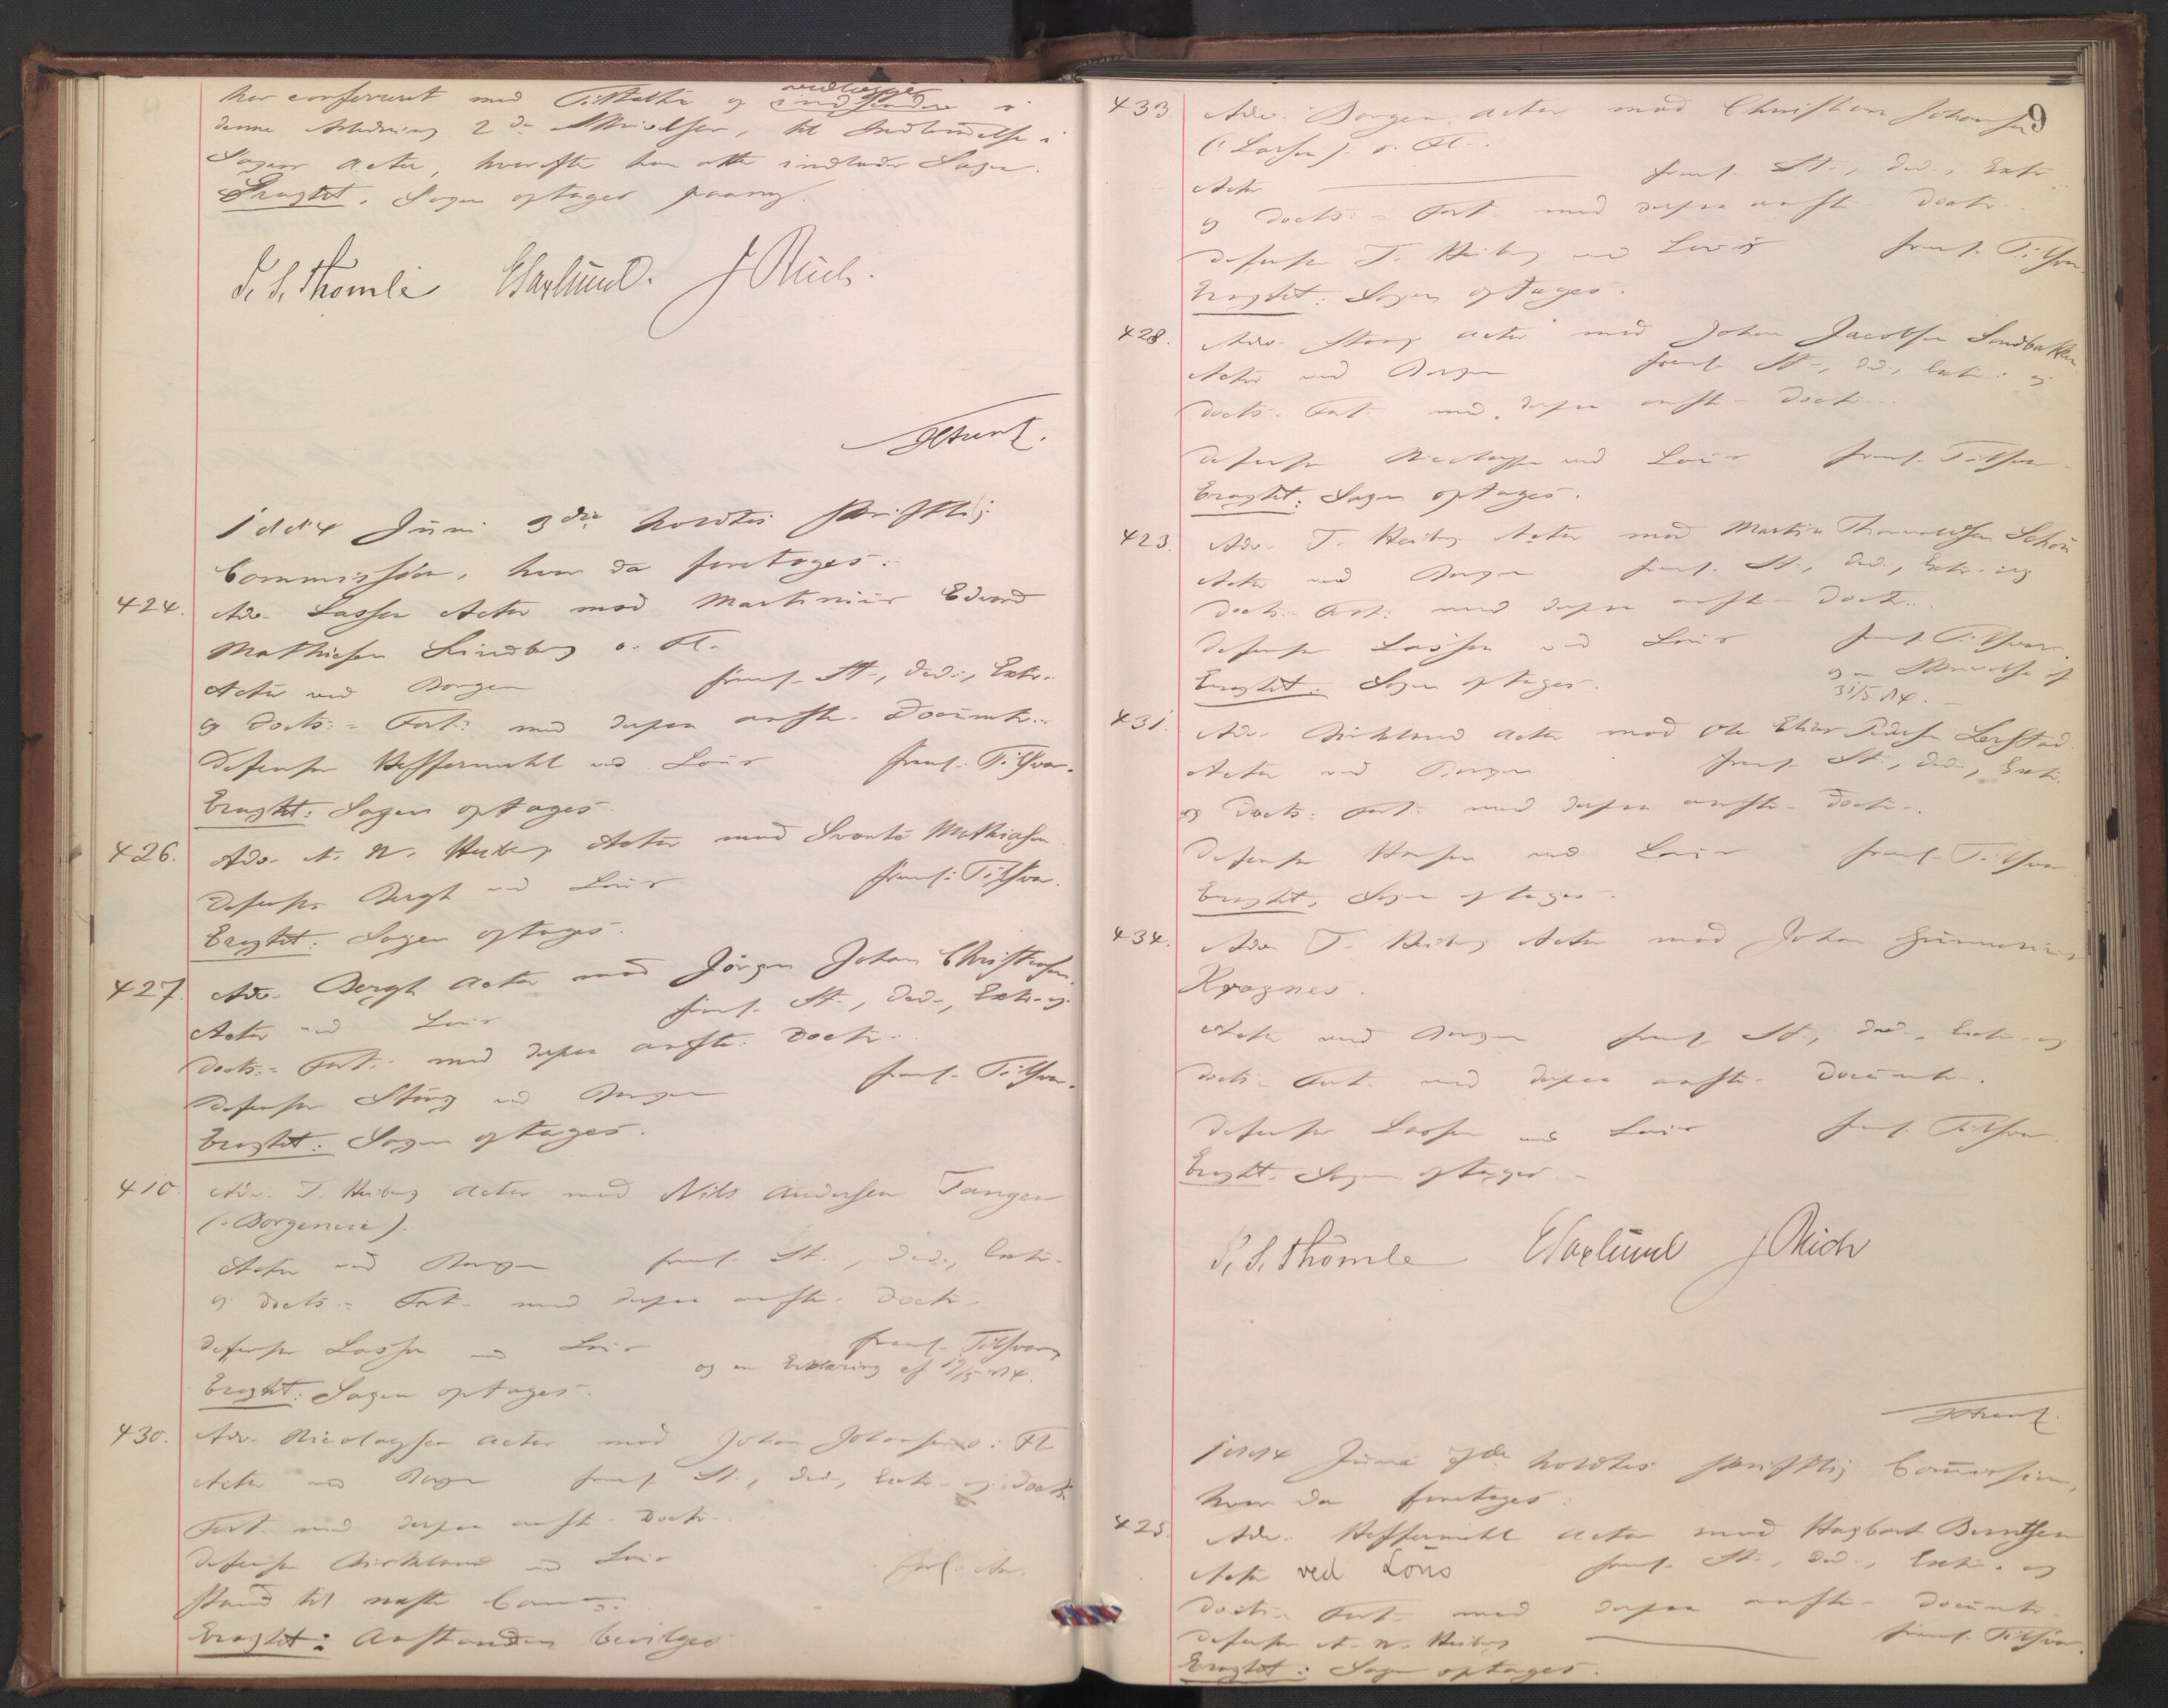 har confereret med Tiltalte og vedlægger
denne Anledning 2de Skrivelser, til Indlemmelse i
Sagens Acter, hvorefter han atter indlader Sagen.
Eragtet. Sagen optages paany.
S. S. Thomle E Saxlund. J Rüch.
1884 Juni 3die holdtes skriftlig
Commission, hvor da foretoges:
424. Adv. Lasson Actor mod Martinius Edvard
Mathiesen Lindberg o. Fl.
Actor ved Borgen freml. St., Ded., Extr.
og Docts.- Fort. med derpaa anførte Documtr.
Defensor Heffermehl ved Lous freml. Tilsvar.
Eragtet: Sagen optages.
426. Adv. A. W. Heiberg Actor mod Svante Mathiasen
Defensor Bergh ved Lous freml. Tilsvar.
Eragtet: Sagen optages.
427. Adv. Bergh Actor mod Jörgen Johan Christensen.
Actor ved Lous freml. St., Ded., Extr. og
Docts.- Fort. med derpaa anførte Doctr.
Defensor Stang ved Borgen freml. Tilsvar.
Eragtet: Sagen optages.
410. Adv. T. Heiberg Actor mod Nils Andersen Tangen
(: Borgenvie).
Actor ved Borgen freml. St., Ded., Extr.
og Docts.- Fort. med derpaa anførte Doctr.
Defensor Lasson ved Lous freml. Tilsvar
og en Erklæring af 19/5 84.
Eragtet: Sagen optages.
430. Adv. Nicolaysen Actor mod Johan Johansen o. Fl.
Actor ved Borgen freml. St., Ded., Extr. og Docts.
Fort. med derpaa anførte Doctr.
Defensor Birkeland ved Lous forl. An-
stand til næste Comm.
Eragtet: Anstanden bevilges
9
433 Adv. Borgen Actor mod Christian Johansen
(: Larsen) o. Fl.
Actor freml. St., Ded., Extr.
og Docts.- Fort. med derpaa anførte Doctr.
Defensor T. Heiberg ved Lous freml. Tilsvar
Eragtet: Sagen optages.
428. Adv. Stang Actor mod Johan Jacobsen Sandbakken
Actor ved Borgen freml. St., Ded., Extr. og
Docts. Fort. med derpaa anførte Doctr.
Defensor Nicolaysen ved Lous freml. Tilsvar
Eragtet: Sagen optages.
423. Adv. T. Heiberg Actor mod Martin Thorvaldsen Schou
Actor ved Borgen freml. St., Ded., Extr. og
Docts. Fort. med derpaa anførte Doctr.
Defensor Lasson ved Lous freml. Tilsvar.
og en Skrivelse af
31/5 84.
Eragtet: Sagen optages.
431. Adv. Birkeland Actor mod Ole Elias Lerstad
Actor ved Borgen freml. St., Ded., Extr.
og Docts. Fort. med derpaa anførte Doctr.
Defensor ved Lous freml. Tilsvar
Eragtet. Sagen optages.
434. Adv. T. Heiberg Actor mod Johan
Krognes.
Actor ved Borgen freml. St., Ded., Extr. og
Docts. Fort. med derpaa anførte Documtr.
Defensor Lasson ved Lous freml. Tilsvar.
Eragtet. Sagen optages.
S. S. Thomle E Saxlund J Rüch
1884 Juni holdtes skriftlig Commission,
hvor da foretoges:
425. Adv. Heffermehl Actor mod Hagbart Berntsen
Actor ved Lous freml. St., Ded., Extr. og
Docts. Fort. med derpaa anførte Documtr.
Defensor A. W. Heiberg freml. Tilsvar.
Eragtet: Sagen optages.